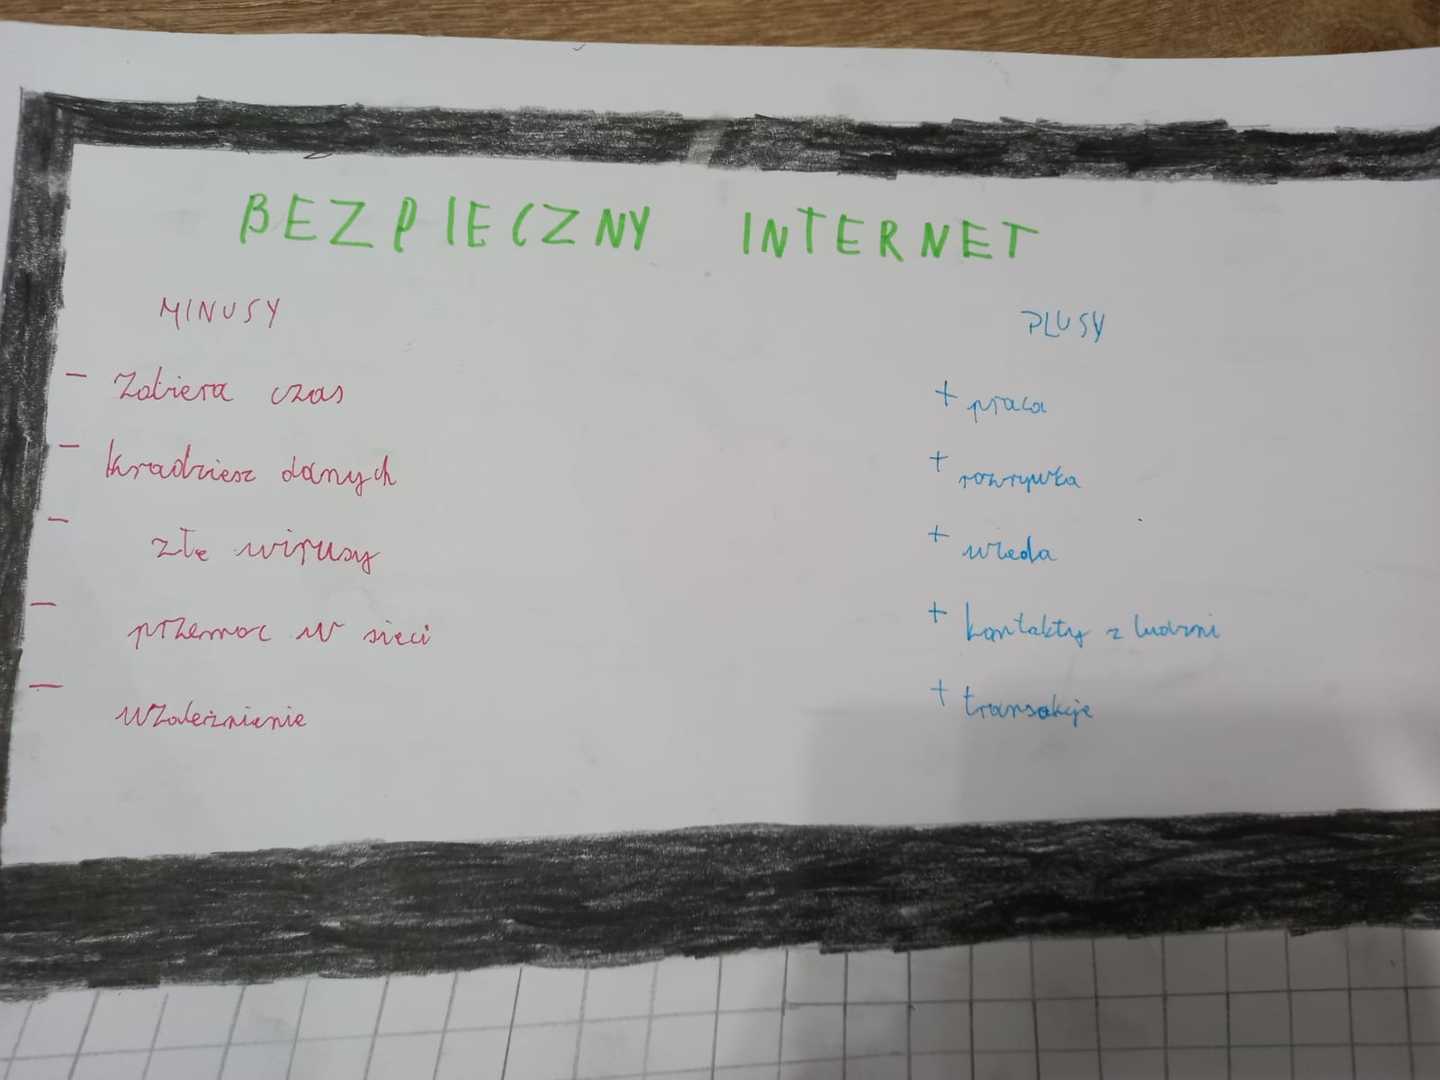 BEZPIECZNY INTERNET
MINUSY
- Zabiera czas
- kradziesz danych
- złe wirusy
- przemoc w sieci
- uzależnienie
PLUSY
+ praca
+ rozrywka
+ wieda
+ kontakty z ludzmi
+ transakcje